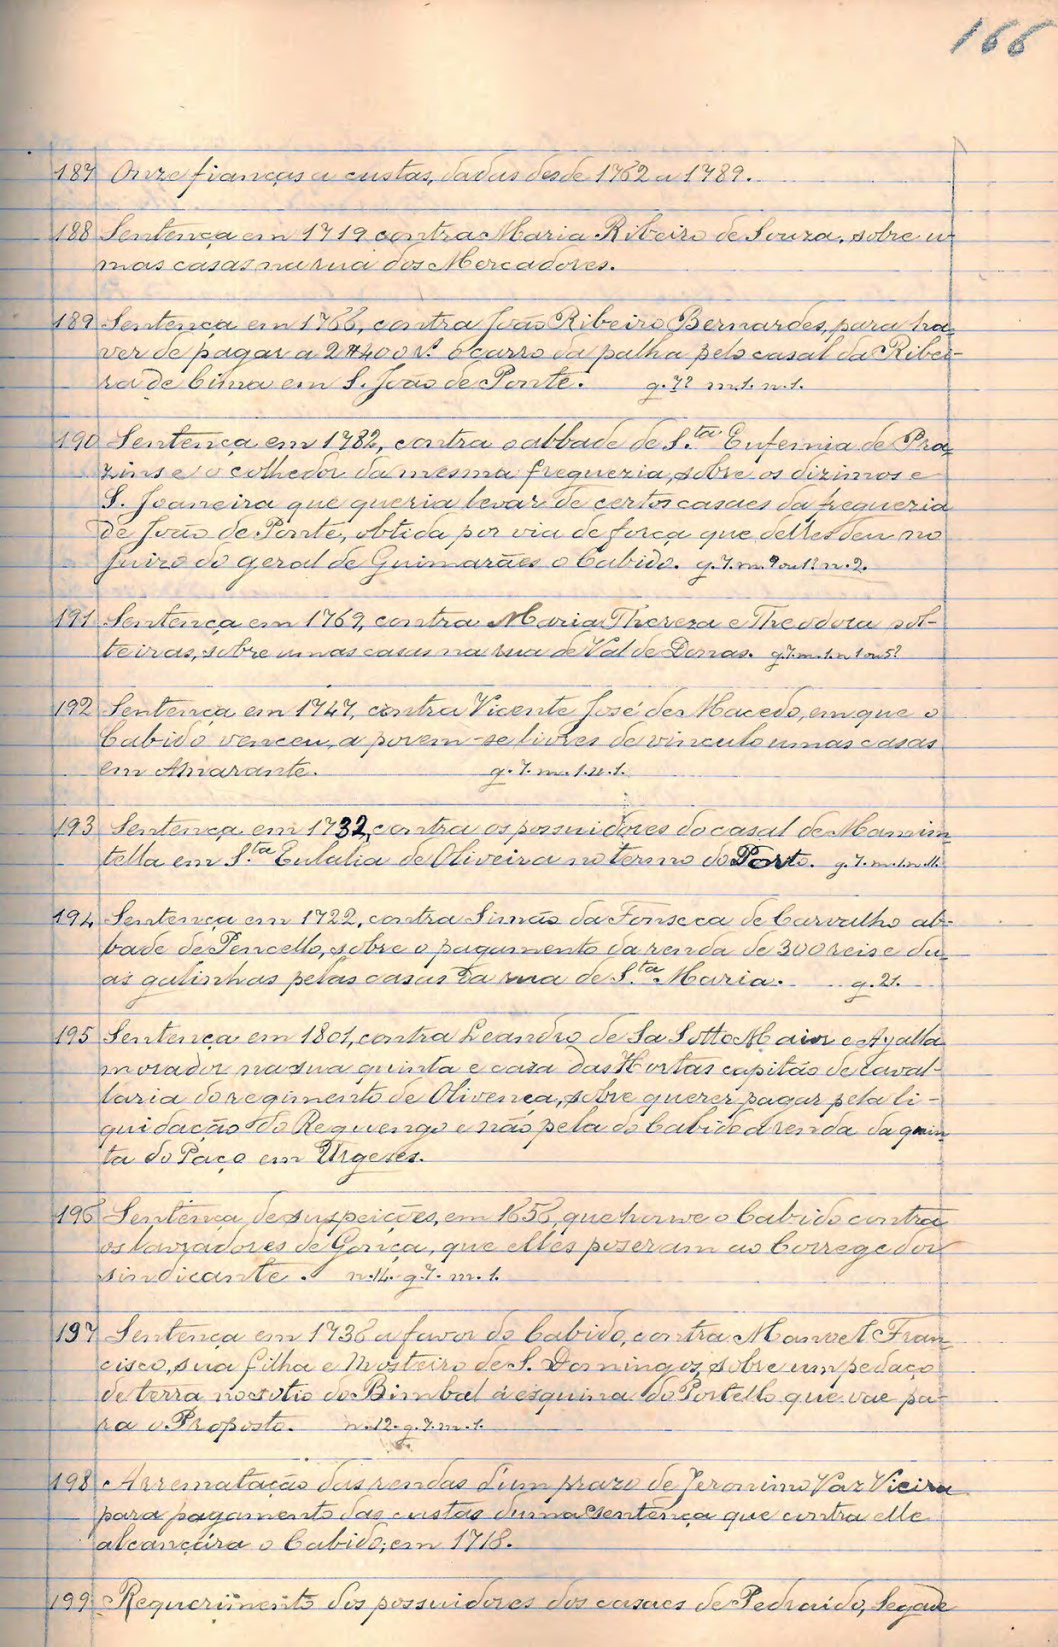 166
187 Onze fianças a custas, dadas desde 1762 a 1789.
188 Sentença em 1719 contra Maria Ribeiro de Souza, sobre u-
mas casas na rua dos Mercadores.
189 Sentença em 1766, contra João Ribeiro Bernardes, para ha-
ver de pagar a 2#400 r.s o carro da palha pelo casal da Ribei-
ra de Cima em S. João de Ponte. g. 7? m.1. n.1.
190 Sentença em 1782, contra o abbade de S.ta Eufemia de Pra-
zins e o colhedor da mesma freguezia, sobre os dizimos e
S. Joaneira que queria levar de certos casaes da freguezia
de João de Ponte, obtida por via de força que delles deu no
juizo do geral de Guimarães o Cabido. g. 7. m. 9 ou 1? n. 2.
191 Sentença em 1769, contra Maria Thereza e Theodora sol-
teiras, sobre umas casas na rua de Val de Donas. g. 7. m. 1. n 1 ou 5?
192 Sentença em 1747, contra Vicente José de Macedo, em que o
Cabido venceu, a porem-se livres de vinculo umas casas
em Amarante. g. 7. m. 1. n. 1.
193 Sentença em 1732, contra os possuidores do casal de Mamim
tella em S.ta Eulalia de Oliveira no termo do Porto. g. 7. m. 1. n. 11.
194 Sentença em 1722, contra Simão da Fonseca de Carvalho ab-
bade de Pencello, sobre o pagamento da renda de 300 reis e du-
as galinhas pelas casas da rua de S.ta Maria. g. 21.
195 Sentença em 1801, contra Leandro de Sa Sotto Maior e Ayalla
morador na sua quinta e casa das Hortas capitão de caval-
laria do regimento de Olivença, sobre querer pagar pela li-
quidação do Reguengo e não pela do Cabido a renda da quin
ta do Paço em Urgeses.
196 Sentença de suspeições, em 1656, que houve o Cabido contra
os lavradores de Gonça, que elles poseram ao Corregedor
sindicante. n. 14. g. 7. m. 1.
197 Sentença em 1736 a favor do Cabido, contra Manoel Fran-
cisco, sua filha e Mosteiro de S. Domingos, sobre um pedaço
de terra no sitio do Bimbal á esquina do Portello que vae pa-
ra o Proposto. n. 12. g. 7. m. 1.
198 Arrematação das rendas d'um prazo de Jeronimo Vaz Vieira
para pagamento das custas duma sentença que contra elle
alcançára o Cabido; em 1718.
199 Requerimento dos possuidores dos casaes de Pedraido, Segade